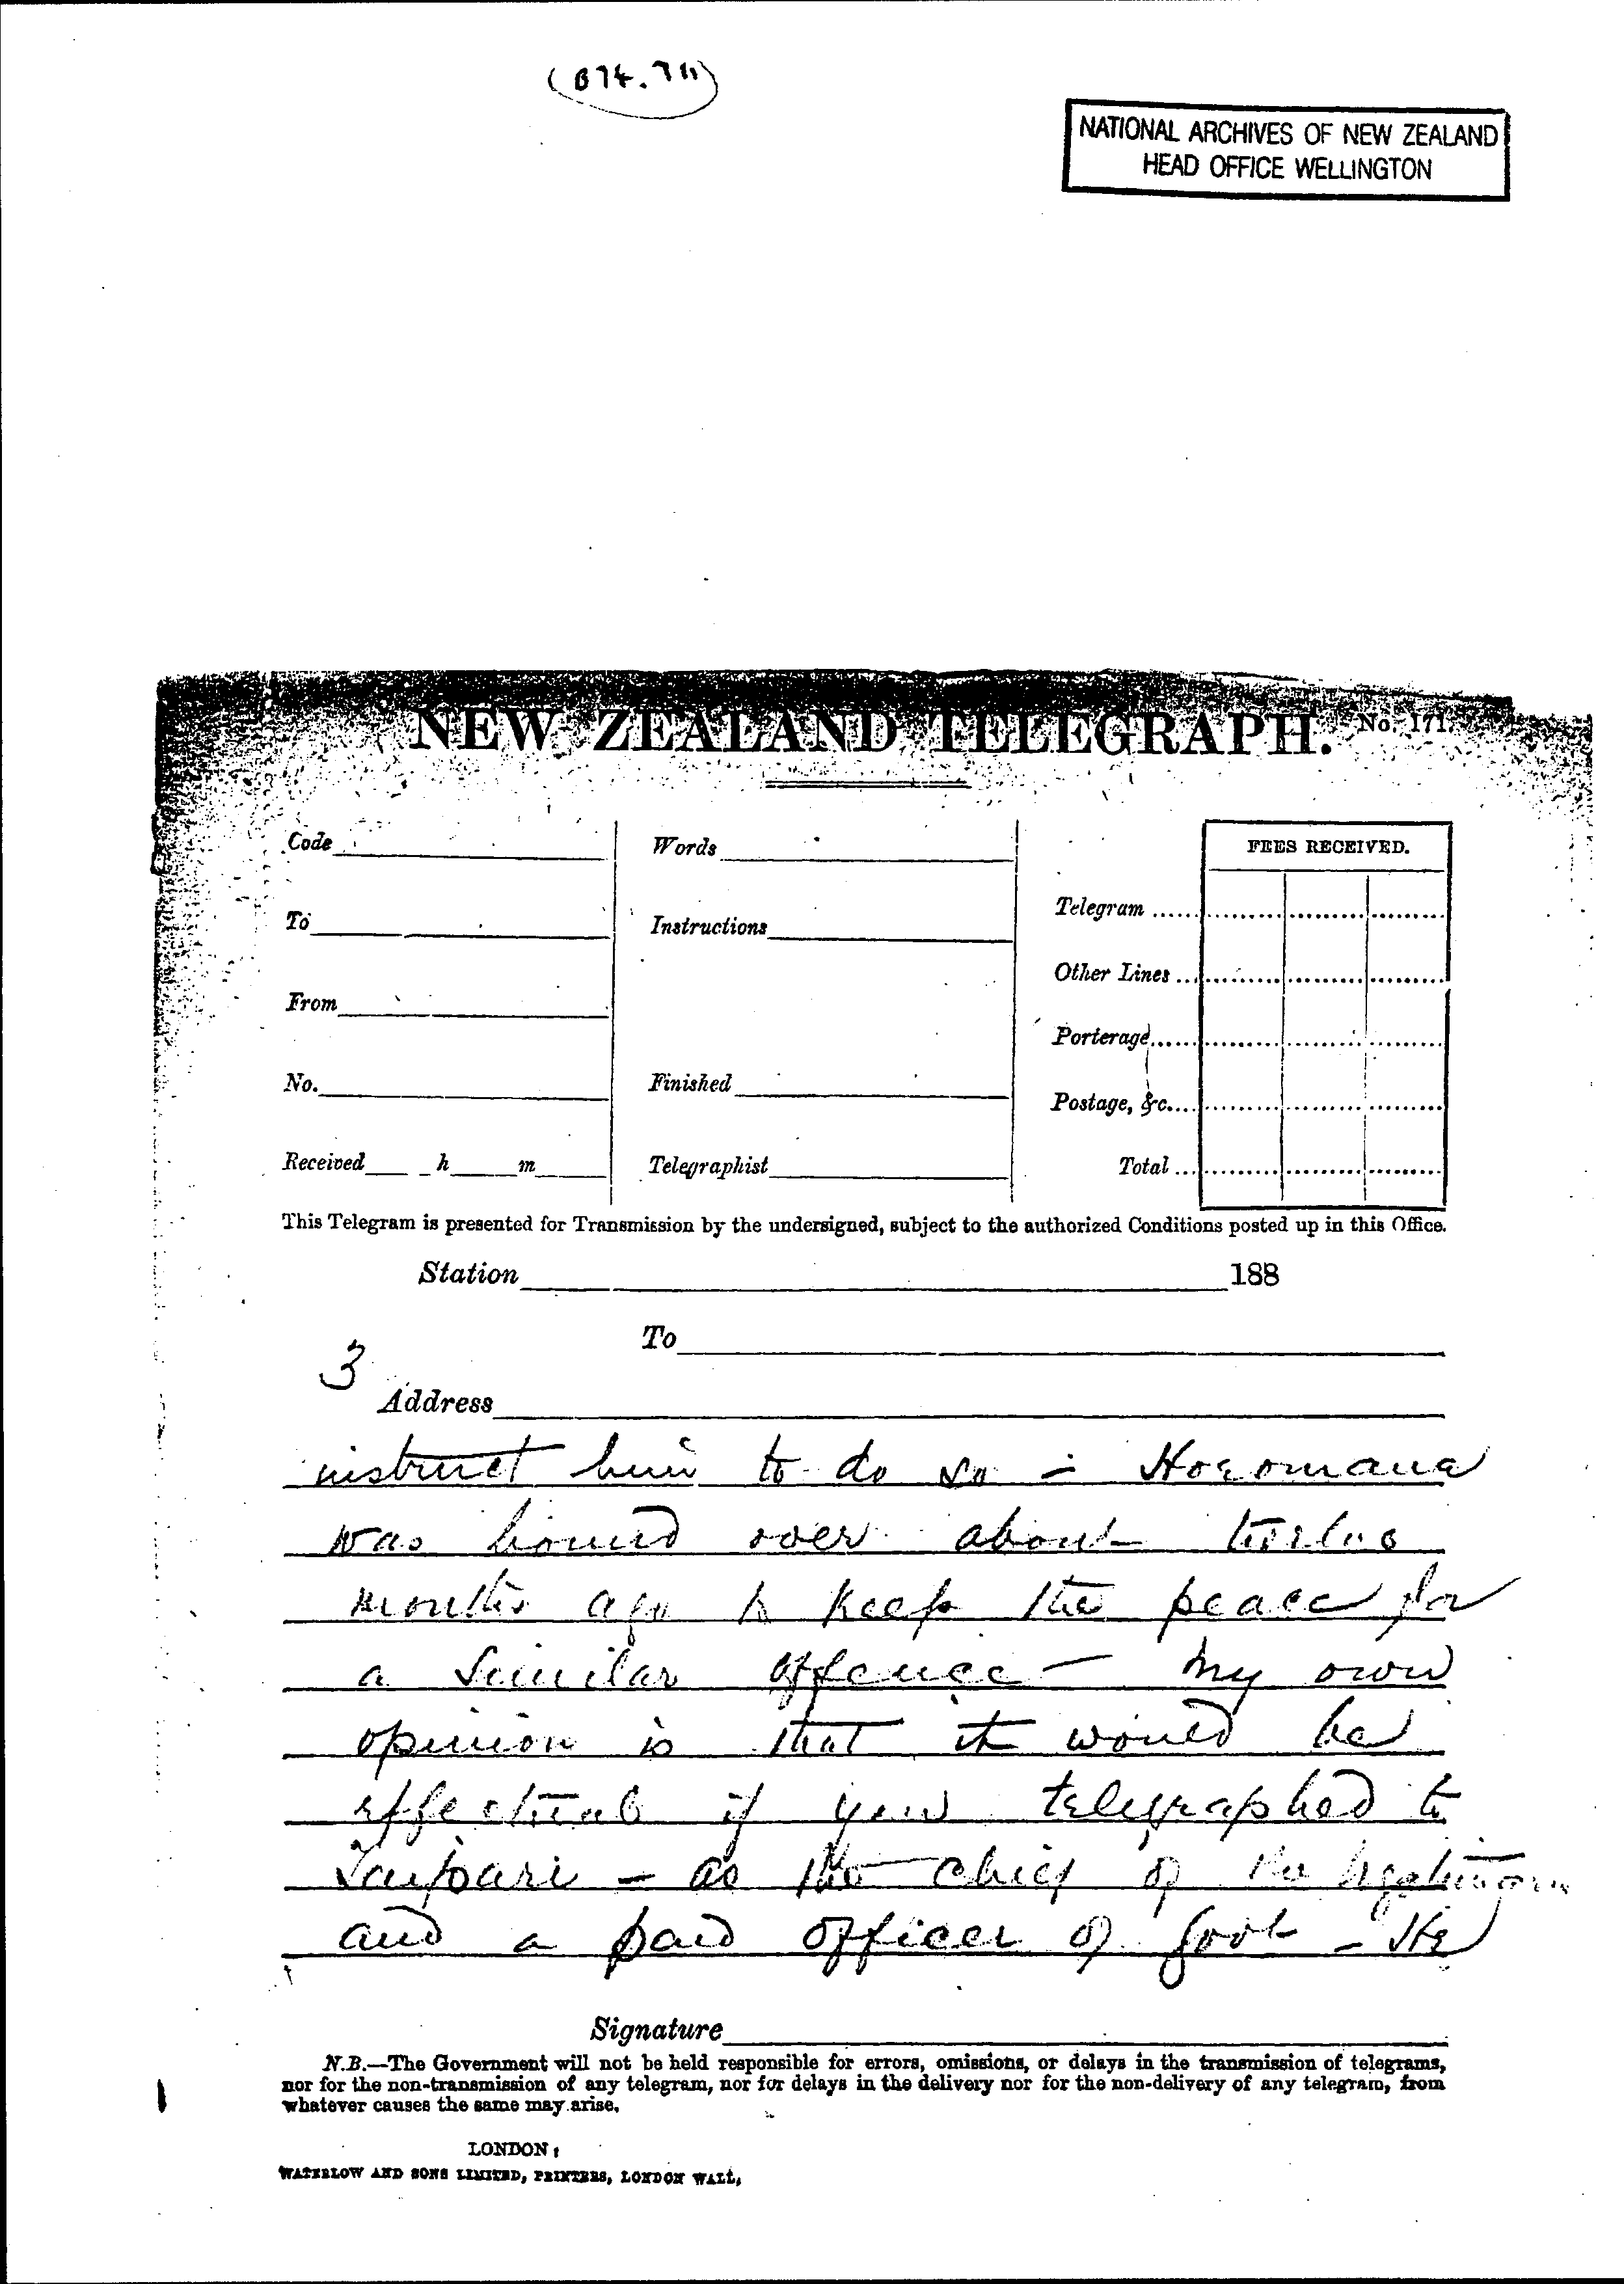 NATIONAL ARCHIVES OF NEW ZEALAND
HEAD OFFICE WELLINGTON
NEW ZEALAND TELEGRAPH. No. 171.
Code
Words
FEES RECEIVED.
To
Instructions
Telegram ......
Other Lines ...
From
Porterage......
No.
Finished
Postage, &c....
Received h m
Telegraphist
Total ...
This Telegram is presented for Transmission by the undersigned, subject to the authorized Conditions posted up in this Office.
Station 188
To
3
Address
instruct him to do so - Horomana
was bound over about twelve
months ago to keep the peace for
a similar offence - My own
opinion is that it would be
effectual if you telegraphed to
Taipari - as the chief of the Ngatimaru
and a paid officer of Govt - He
Signature
N.B.—The Government will not be held responsible for errors, omissions, or delays in the transmission of telegrams,
nor for the non-transmission of any telegram, nor for delays in the delivery nor for the non-delivery of any telegram, from
whatever causes the same may arise.
LONDON:
WATERLOW AND SONS LIMITED, PRINTERS, LONDON WALL,